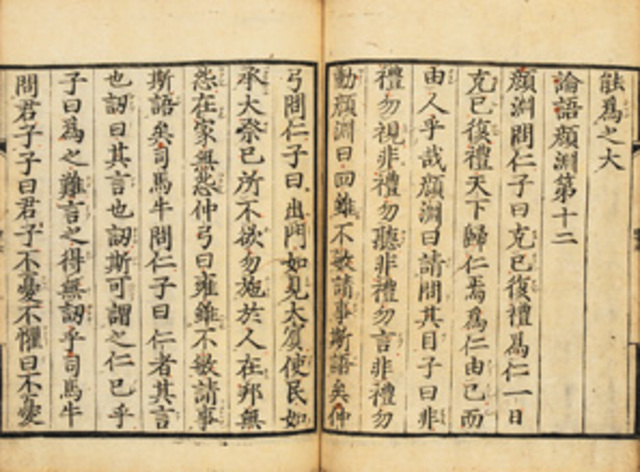 能為之大
論語顔淵第十二
顔淵問仁子曰克已復禮為仁一日
克已復禮天下歸仁焉為仁由已而
由人乎哉顔淵曰請問其目子曰非
禮勿視非禮勿聽非禮勿言非禮勿
動顔淵曰回雖不敏請事斯語矣仲
弓問仁子曰出門如見大賔使民如
承大祭已所不欲勿施於人在邦無
怨在家無怨仲弓曰雍雖不敏請事
斯語矣司馬牛問仁子曰仁者其言
也訒曰其言也訒斯可謂之仁已乎
子曰為之難言之得無訒乎司馬牛
問君子子曰君子不憂不懼曰不憂